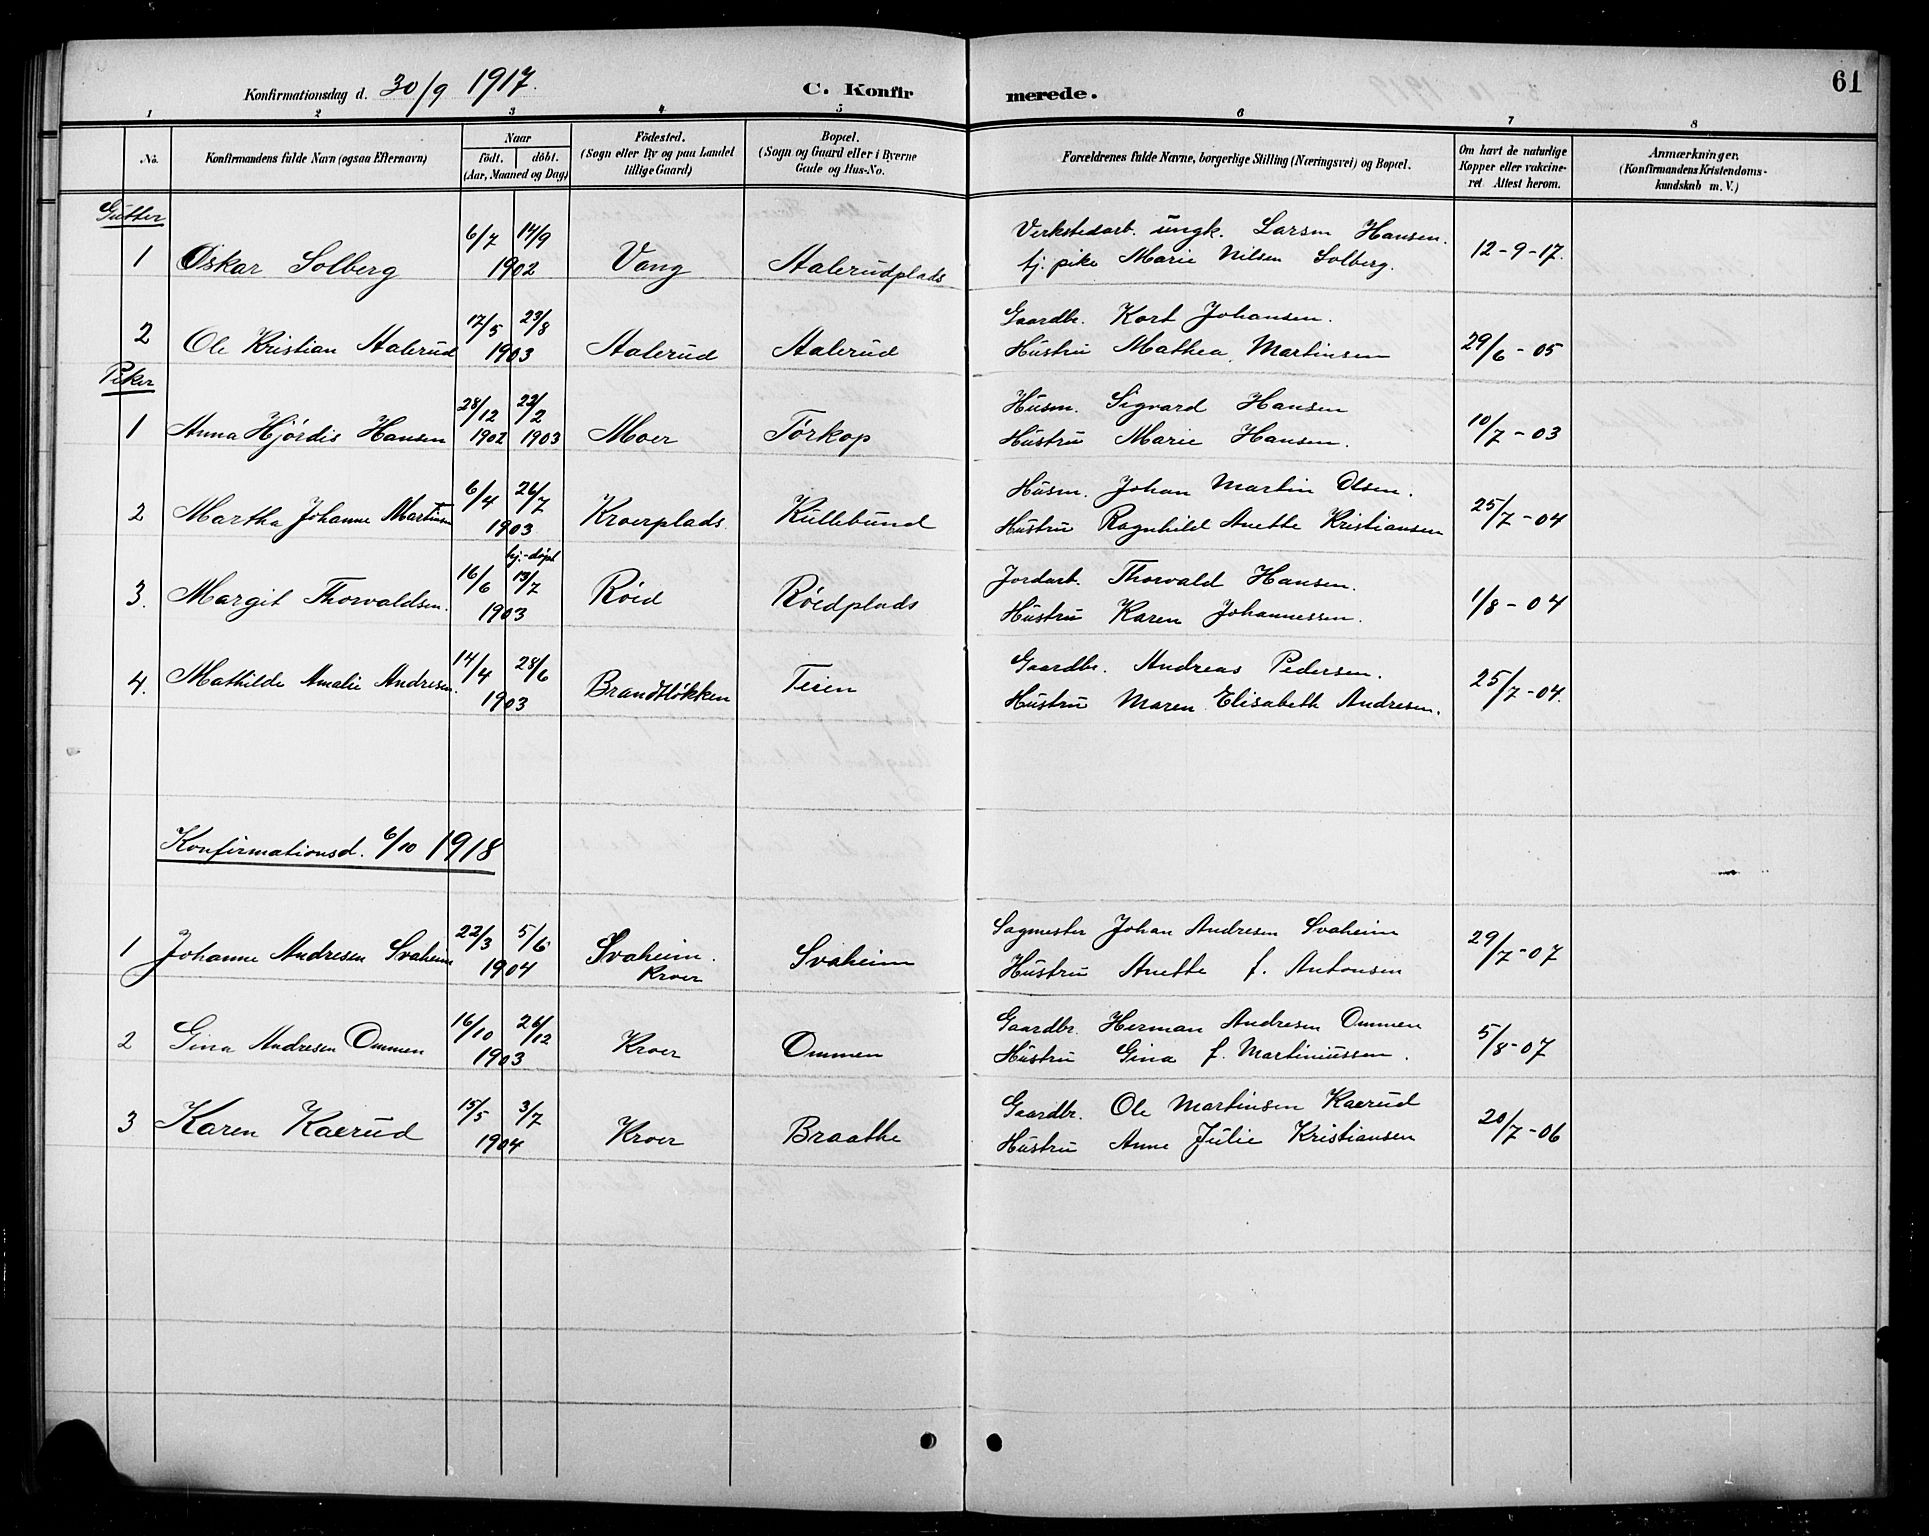 Konfirmationsdag d. 30/9 1917. C. Konfirmerede. 61
1 2 3 4 5 6 7 8
No. Konfirmandens fulde Navn (ogsaa Efternavn) Naar födt. döbt. (Aar, Maaned og Dag) Födested. (Sogn eller By og paa Landet tillige Gaard) Bopæl. (Sogn og Gaard eller i Byerne Gade og Hus-No. Forældrenes fulde Navne, borgerlige Stilling (Næringsvei) og Bopæl. Om havt de naturlige Kopper eller vakcineret. Attest herom. Anmærkninger. (Konfirmandens Kristendomskundskab m. V.)
Gutter
1 Oskar Solberg 6/7 17/9 1902 Vang Aalerudplads Verkstedarb. ungk. Larsen Hansen. 12-9-17.
tj. pike Marie Nilsen Solberg.
2 Ole Kristian Aalerud 17/5 23/8 1903 Aalerud Aalerud Gaardbr. Kort Johansen. 29/6-05
Hustru Mathea Martinsen
Piker
1 Anna Hjørdis Hansen 28/12 1902 22/2 1903 Moer Torkop Husm. Sigvard Hansen 10/7-03
Hustru Marie Hansen.
2 Martha Johanne Martinsen 6/4 26/7 1903 Kroerplads. Kullebund Husm. Johan Martin Olsen. 25/7-04
Hustru Ragnhild Anette Kristiansen
3. Margit Thorvaldsen. 16/6 hj.-døpt 13/7 1903 Röed Röedplads Jordarb. Thorvald Hansen. 1/8-04
Hustru Karen Johannessen.
4. Mathilde Amalie Andresen. 14/4 28/6 1903 Brandtløkken Teien Gaardbr. Andreas Pedersen. 25/7-04.
Hustru Maren Elisabeth Andresen.
Konfirmationsd. 6/10 1918
1 Johanne Andresen Svaheim 22/3 5/6 1904 Svaheim. Kroer Svaheim Sagmester Johan Andresen Svaheim 29/7-07
Hustru Anette f. Antonsen
2 Gina Andresen Ommen 16/10 26/12 1903 Kroer Ommen Gaardbr. Herman Andresen Ommen 5/8-07
Hustru Gina f. Martiniussen.
3 Karen Kaerud 15/5 3/7 1904 Kroer Braathe Gaardbr. Ole Martinsen Kaerud 20/7-06
Hustru Anne Julie Kristiansen